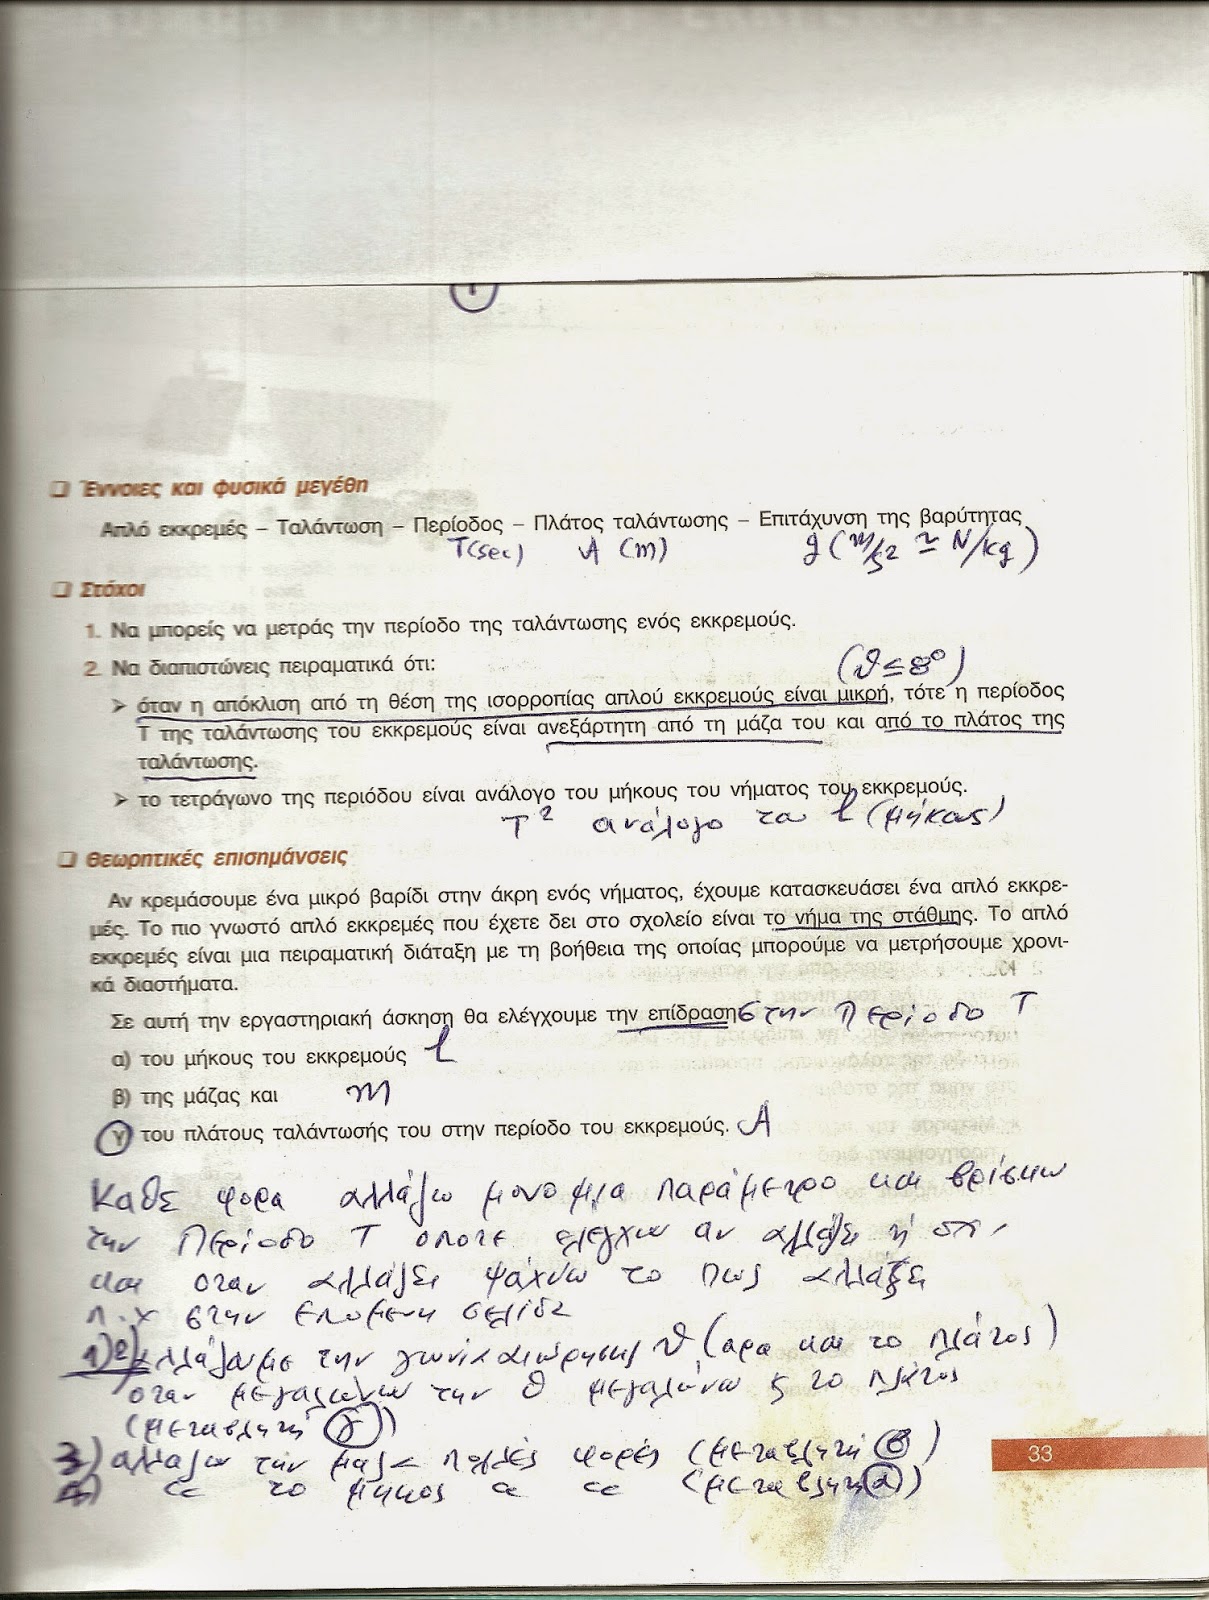 ❑ Έννοιες και φυσικά μεγέθη
Απλό εκκρεμές – Ταλάντωση – Περίοδος – Πλάτος ταλάντωσης – Επιτάχυνση της βαρύτητας
T(sec) A (m) g (m/s2 ≃ N/kg)
❑ Στόχοι
1. Να μπορείς να μετράς την περίοδο της ταλάντωσης ενός εκκρεμούς.
2. Να διαπιστώνεις πειραματικά ότι:
(θ ≤ 8°)
➤ όταν η απόκλιση από τη θέση της ισορροπίας απλού εκκρεμούς είναι μικρή, τότε η περίοδος
Τ της ταλάντωσης του εκκρεμούς είναι ανεξάρτητη από τη μάζα του και από το πλάτος της
ταλάντωσης.
➤ το τετράγωνο της περιόδου είναι ανάλογο του μήκους του νήματος του εκκρεμούς.
T² ανάλογο του l (μήκους)
❑ Θεωρητικές επισημάνσεις
Αν κρεμάσουμε ένα μικρό βαρίδι στην άκρη ενός νήματος, έχουμε κατασκευάσει ένα απλό εκκρε-
μές. Το πιο γνωστό απλό εκκρεμές που έχετε δει στο σχολείο είναι το νήμα της στάθμης. Το απλό
εκκρεμές είναι μια πειραματική διάταξη με τη βοήθεια της οποίας μπορούμε να μετρήσουμε χρονι-
κά διαστήματα.
Σε αυτή την εργαστηριακή άσκηση θα ελέγχουμε την επίδραση στην Περίοδο T
α) του μήκους του εκκρεμούς l
β) της μάζας και m
γ) του πλάτους ταλάντωσής του στην περίοδο του εκκρεμούς. A
Καθε φορα αλλάζω μονο μια παράμετρο και βρίσκω
την Περίοδο T οποτε ελέγχω αν αλλαξε ή οχι,
και οταν αλλάξει ψάχνω το πως αλλάζει
π.χ στην επομενη σελίδα
1)2) αλλάζουμε την γωνία αιώρησης θ (αρα και το πλάτος)
οταν μεγαλώνω την θ μεγαλώνω ς το πλάτος
(μεταβλητή γ)
3) αλλαζω την μαζα πολλές φορές (μεταβλητή β)
4) " το μηκος " " (μεταβλητη α)
33